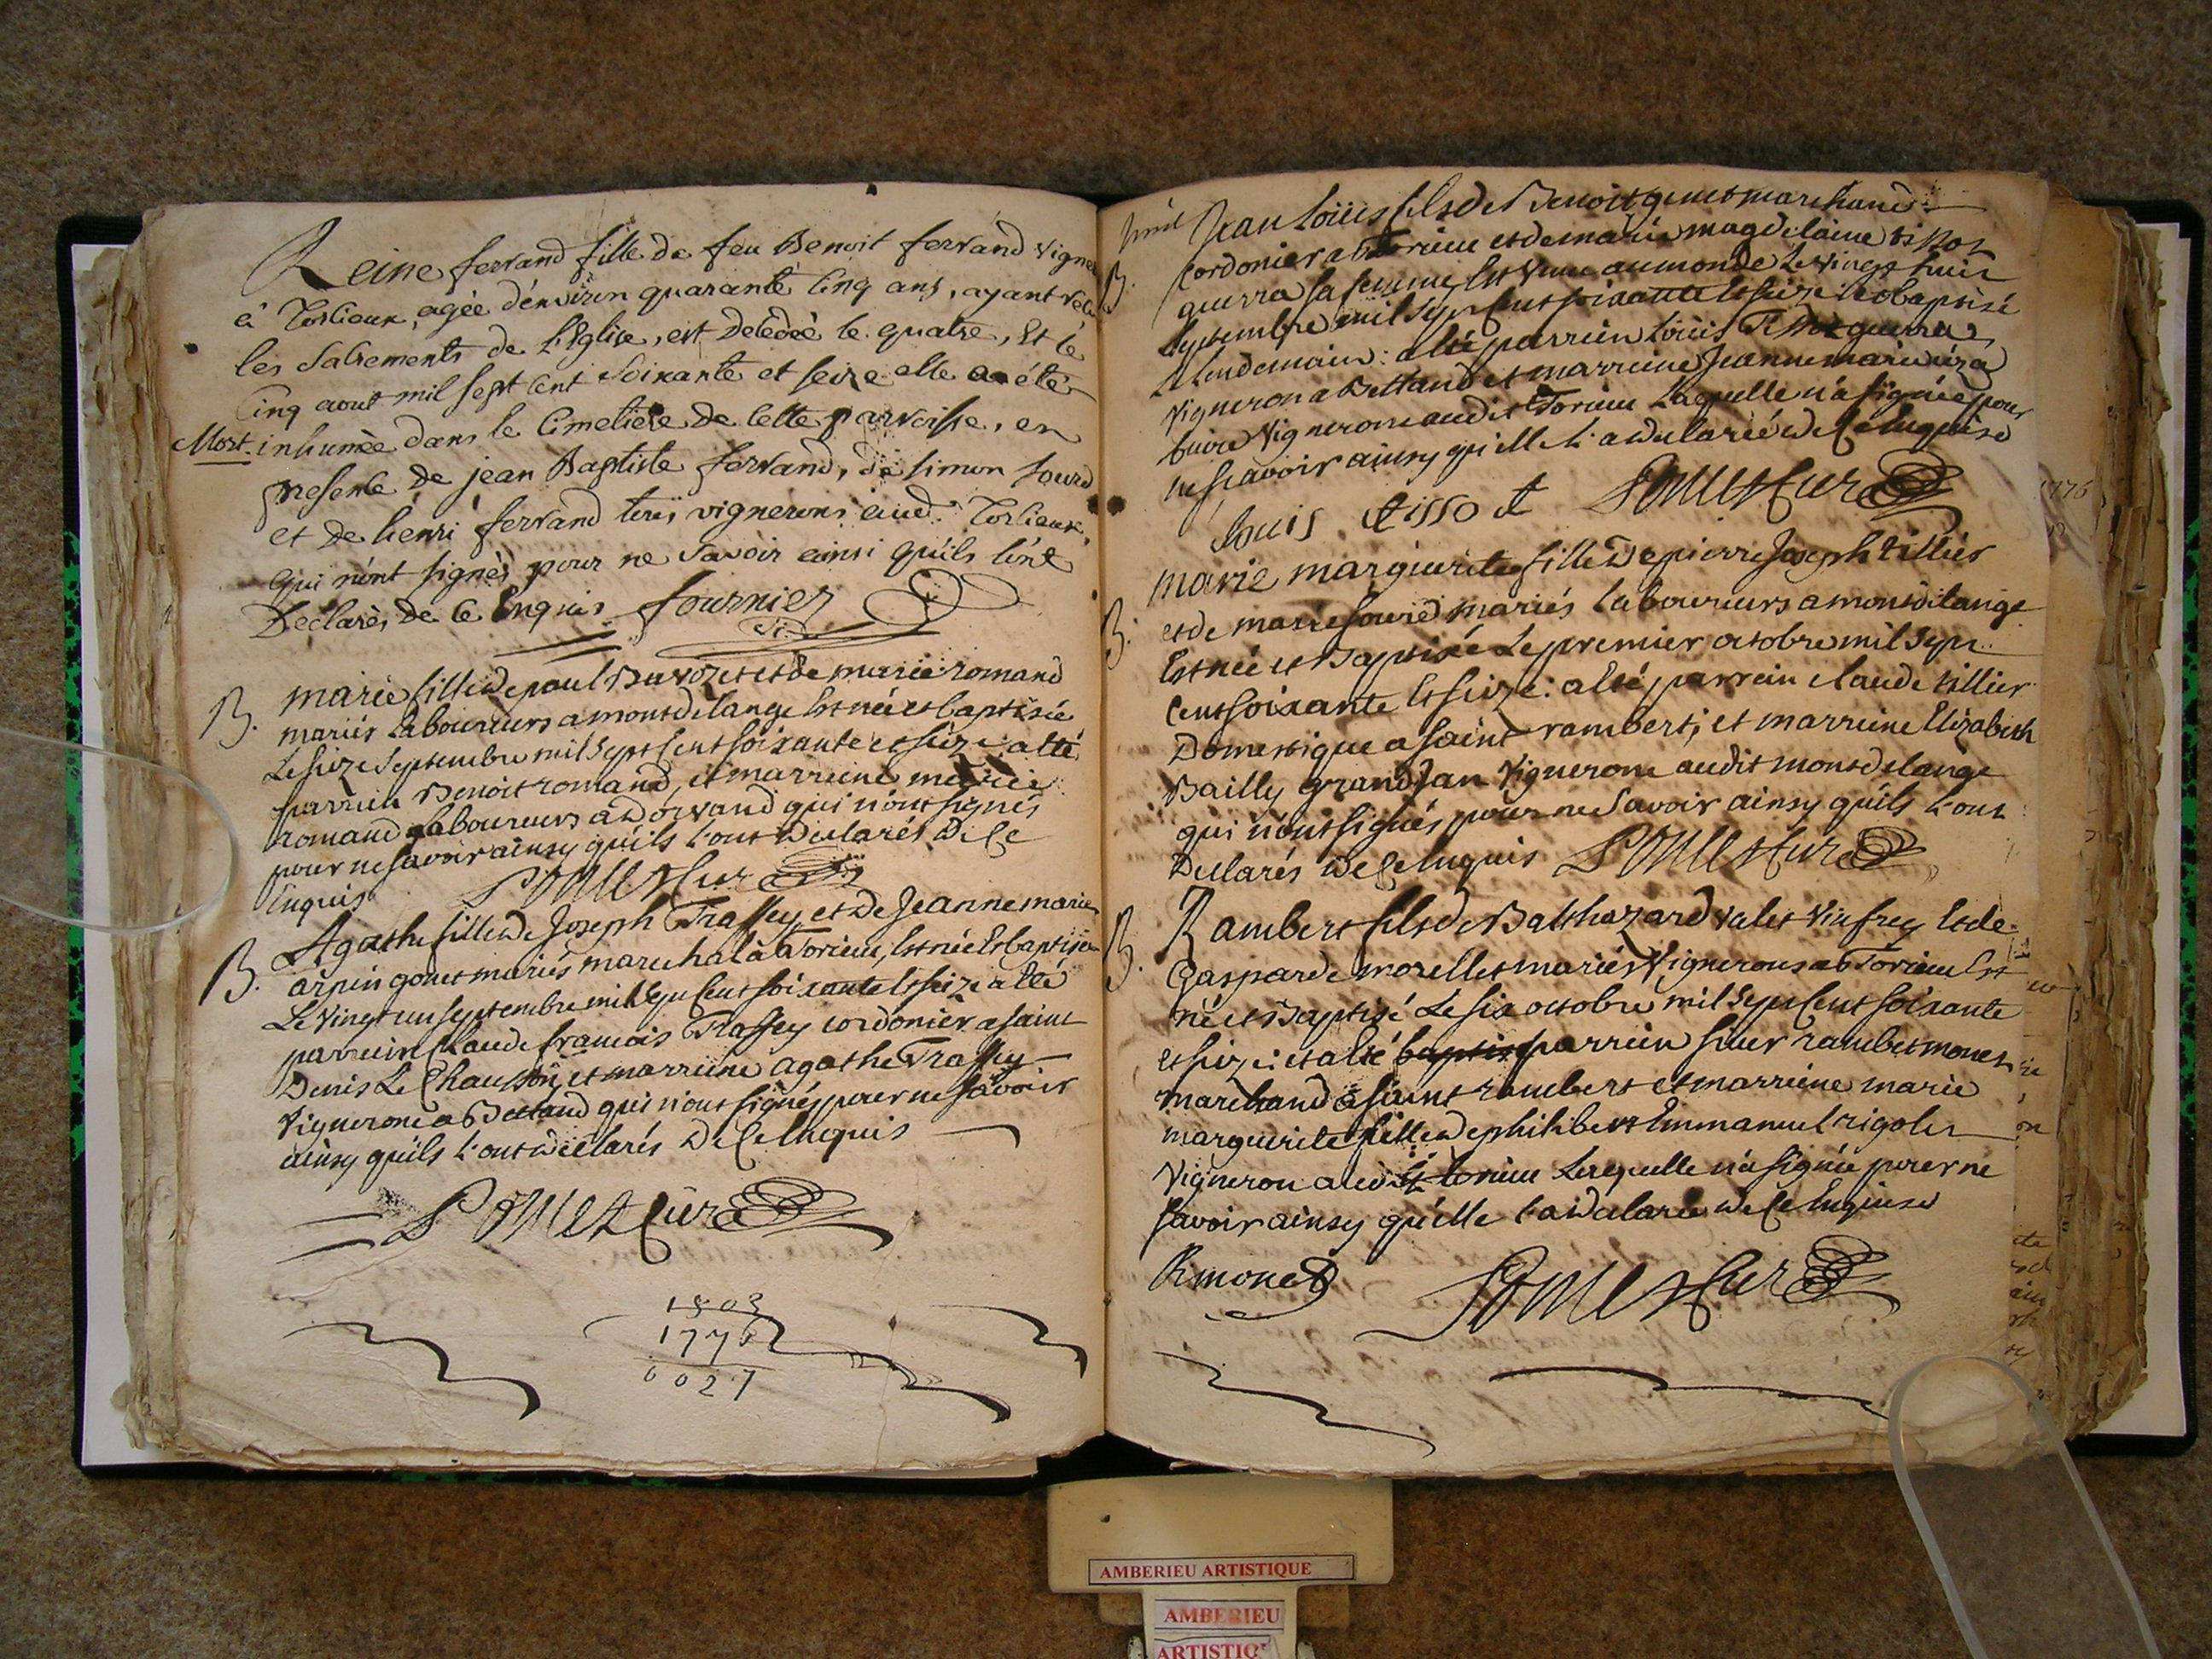 Reine ferrand fille de feu Benoit ferrand vigne
à Torlieux, agée d'environ quarante cinq ans, ayant
les Sacrements de l'Eglise, est decedée le quatre, Et le
Cinq aout mil sept cent soixante et seize elle a été
Mort. inhumée dans le Cimetiere de cette parroisse, en
presence de jean Baptiste ferrand, de simon sourd
et de henri ferrand tous vignerons aud. Torlieux,
qui n'ont signés pour ne savoir ainsi quils l'ont
Declarés de ce Enquis. fournier
B. marie fille de paul Buvozet et de marie romand
mariés Laboureurs a montdelange Est née et baptisée
Le seize septembre mil sept Cent soixante et seize: a été
parrein Benoit romand, et marreine marie
romand laboureurs a dorvand qui n'ont signés
pour ne savoir ainsy quils l'ont declarés de Ce
Enquis Curé
B. Agathe fille de Joseph Traffey et de Jeanne marie
arpin gonet mariés marechal à Torieu, Est née Et baptisée
Le vingt un septembre mil sept Cent soixante Et seize a été
parrein Claude francois Traffey cordonier a saint
Denis Le Chausson, et marreine agathe Traffey
vignerone a Bettand qui n'ont signés pour ne savoir
ainsy quils l'ont déclarés de Ce Enquis
Curé
1803
1776
0027
Jean Loüis fils de Benoit genet marchand
B. Cordonier a Torieu et de marie magdelaine tissot
guerra sa femme, Est venu au monde Le vingt huit
septembre mil sept Cent soixante Et seize et baptisé
Le lendemain: a été parrein Loüis Tissot guerra
vigneron a Bettand et marreine Jeanne marie
vignerone audit Torieu Laquelle n'a signée pour
ne scavoir ainsy qu'elle L'a declarée de Ce Enquise
Louis tissot Curé
1776
marie marguerite fille de pierre Joseph tillier
B. et de marie sourd mariés Laboureurs a montdelange
Est née et Baptisée Le premier octobre mil sept
Cent soixante Et seize: a été parrein claude tillier
Domestique a saint rambert; et marreine Elizabeth
Bailly grandJan vignerone audit montdelange
qui n'ont signés pour ne savoir ainsy qu'ils L'ont
Declarés de Ce Enquis Curé
B. Rambert fils de Balthazard valet vinfrey Et de
Gasparde morellet mariés vignerons a Torieu Est
né et Baptisé Le six octobre mil sept Cent soixante
et seize: et a été baptisé parrein sieur rambert monet
marchand a saint rambert et marreine marie
marguerite fille de philibert Emmanuel rigolet
vigneron audit torieu Laquelle n'a signée pour ne
savoir ainsy qu'elle l'a declarée de Ce Enquise
Rmonet Curé
AMBERIEU ARTISTIQUE
AMBERIEU
ARTISTIQ